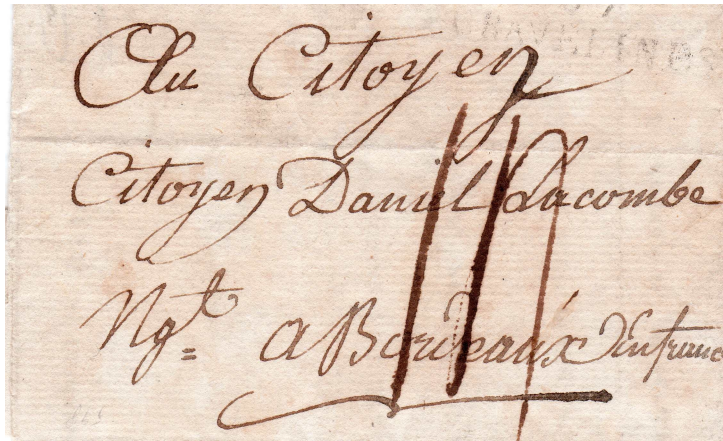 GRAVELINES
Au Citoyen
Citoyen Daniel Lacombe
Ngt a Bordeaux En franc